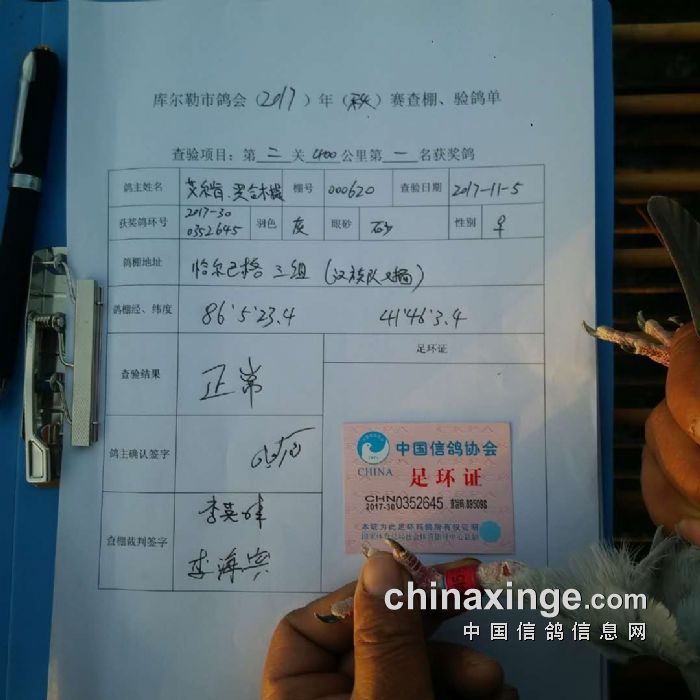 库尔勒市鸽会（2017）年（秋）赛查棚、验鸽单
查验项目：第 二 关 400 公里第 一 名获奖鸽
鸽主姓名 棚号 000620 查验日期 2017-11-5
获奖鸽环号 2017-30 0352645 羽色 灰 眼砂 砂 性别 ♀
鸽棚地址 恰尔巴格 三组
鸽棚经、纬度 86°5'23.4 41°46'3.4
查验结果 正常
足环证
鸽主确认签字
查棚裁判签字 李英
李海宾
中国信鸽协会
CHINA
足环证
CHN
2017-30 0352645
本证为此足环所有权证明
chinaxinge.com
中国信鸽信息网